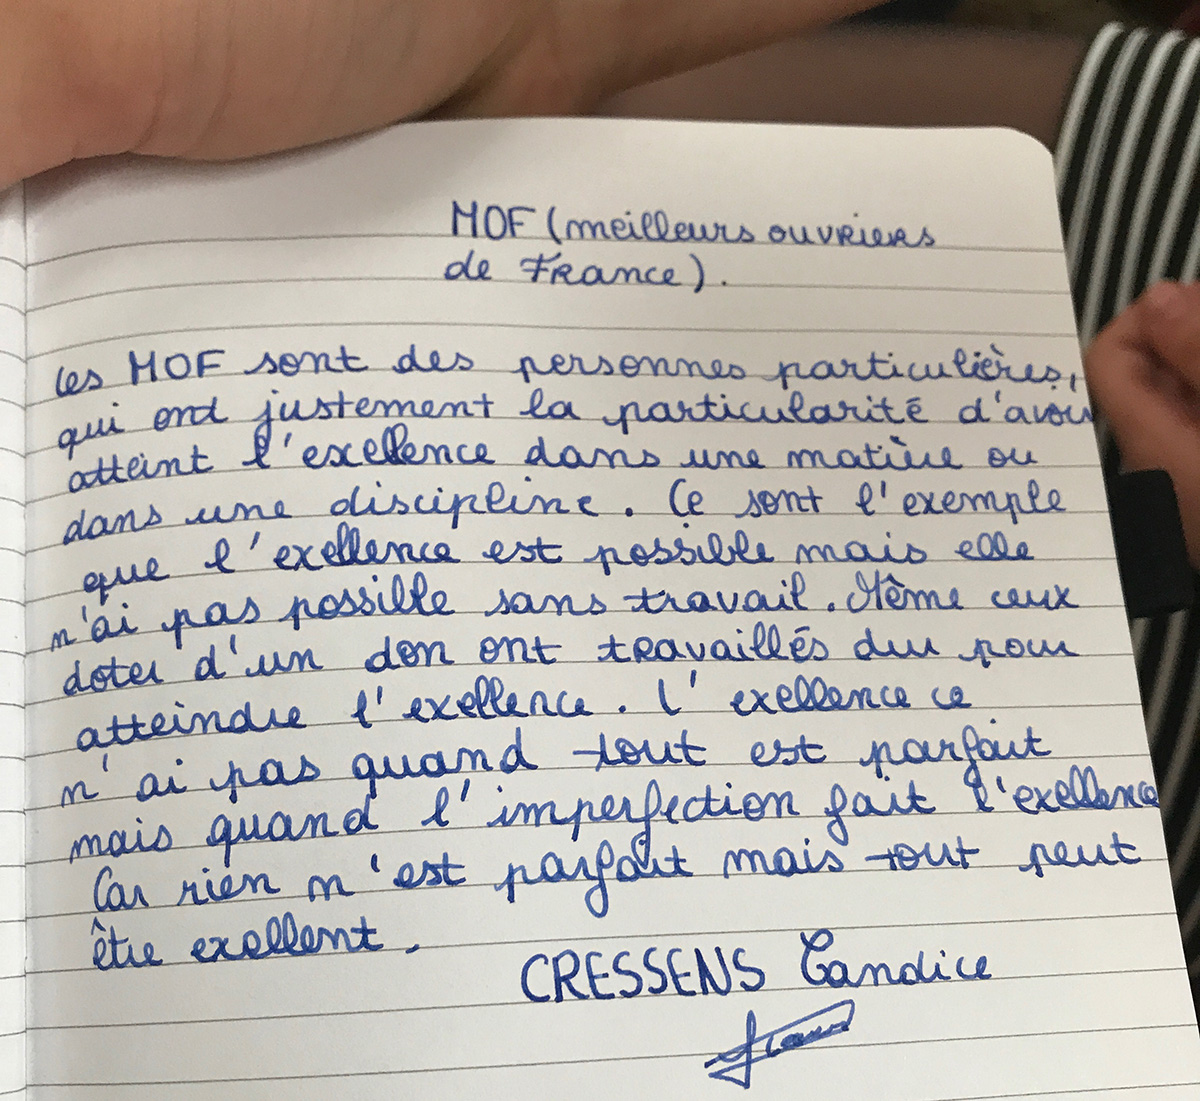 MOF (meilleurs ouvriers
de France).
Les MOF sont des personnes particulières,
qui ont justement la particularité d'avoir
atteint l'exellence dans une matière ou
dans une discipline. Ce sont l'exemple
que l'exellence est possible mais elle
n'ai pas possible sans travail. Même ceux
doter d'un don ont travaillés dur pour
atteindre l'exellence. L'exellence ce
n'ai pas quand tout est parfait
mais quand l'imperfection fait l'exellence
Car rien n'est parfait mais tout peut
être exellent.
CRESSENS Candice